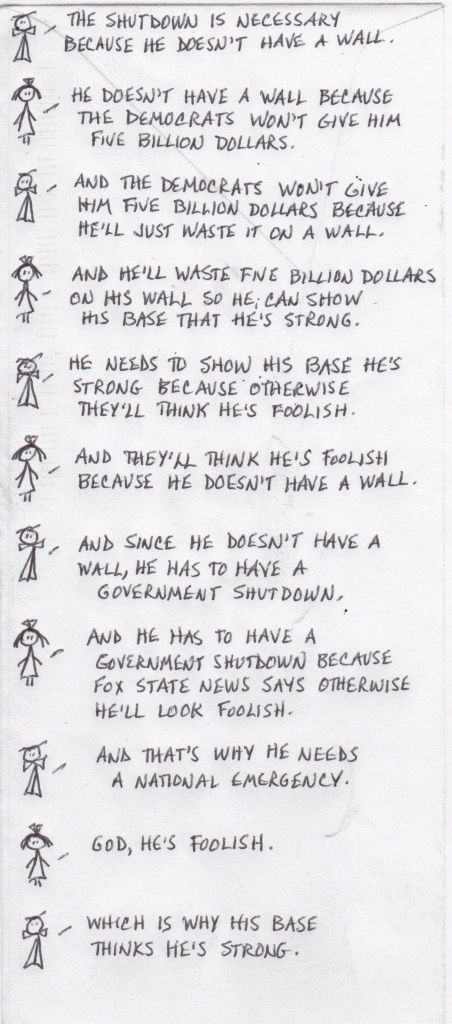 THE SHUTDOWN IS NECESSARY
BECAUSE HE DOESN'T HAVE A WALL.
HE DOESN'T HAVE A WALL BECAUSE
THE DEMOCRATS WON'T GIVE HIM
FIVE BILLION DOLLARS.
AND THE DEMOCRATS WON'T GIVE
HIM FIVE BILLION DOLLARS BECAUSE
HE'LL JUST WASTE IT ON A WALL.
AND HE'LL WASTE FIVE BILLION DOLLARS
ON HIS WALL SO HE CAN SHOW
HIS BASE THAT HE'S STRONG.
HE NEEDS TO SHOW HIS BASE HE'S
STRONG BECAUSE OTHERWISE
THEY'LL THINK HE'S FOOLISH.
AND THEY'LL THINK HE'S FOOLISH
BECAUSE HE DOESN'T HAVE A WALL.
AND SINCE HE DOESN'T HAVE A
WALL, HE HAS TO HAVE A
GOVERNMENT SHUTDOWN.
AND HE HAS TO HAVE A
GOVERNMENT SHUTDOWN BECAUSE
FOX STATE NEWS SAYS OTHERWISE
HE'LL LOOK FOOLISH.
AND THAT'S WHY HE NEEDS
A NATIONAL EMERGENCY.
GOD, HE'S FOOLISH.
WHICH IS WHY HIS BASE
THINKS HE'S STRONG.